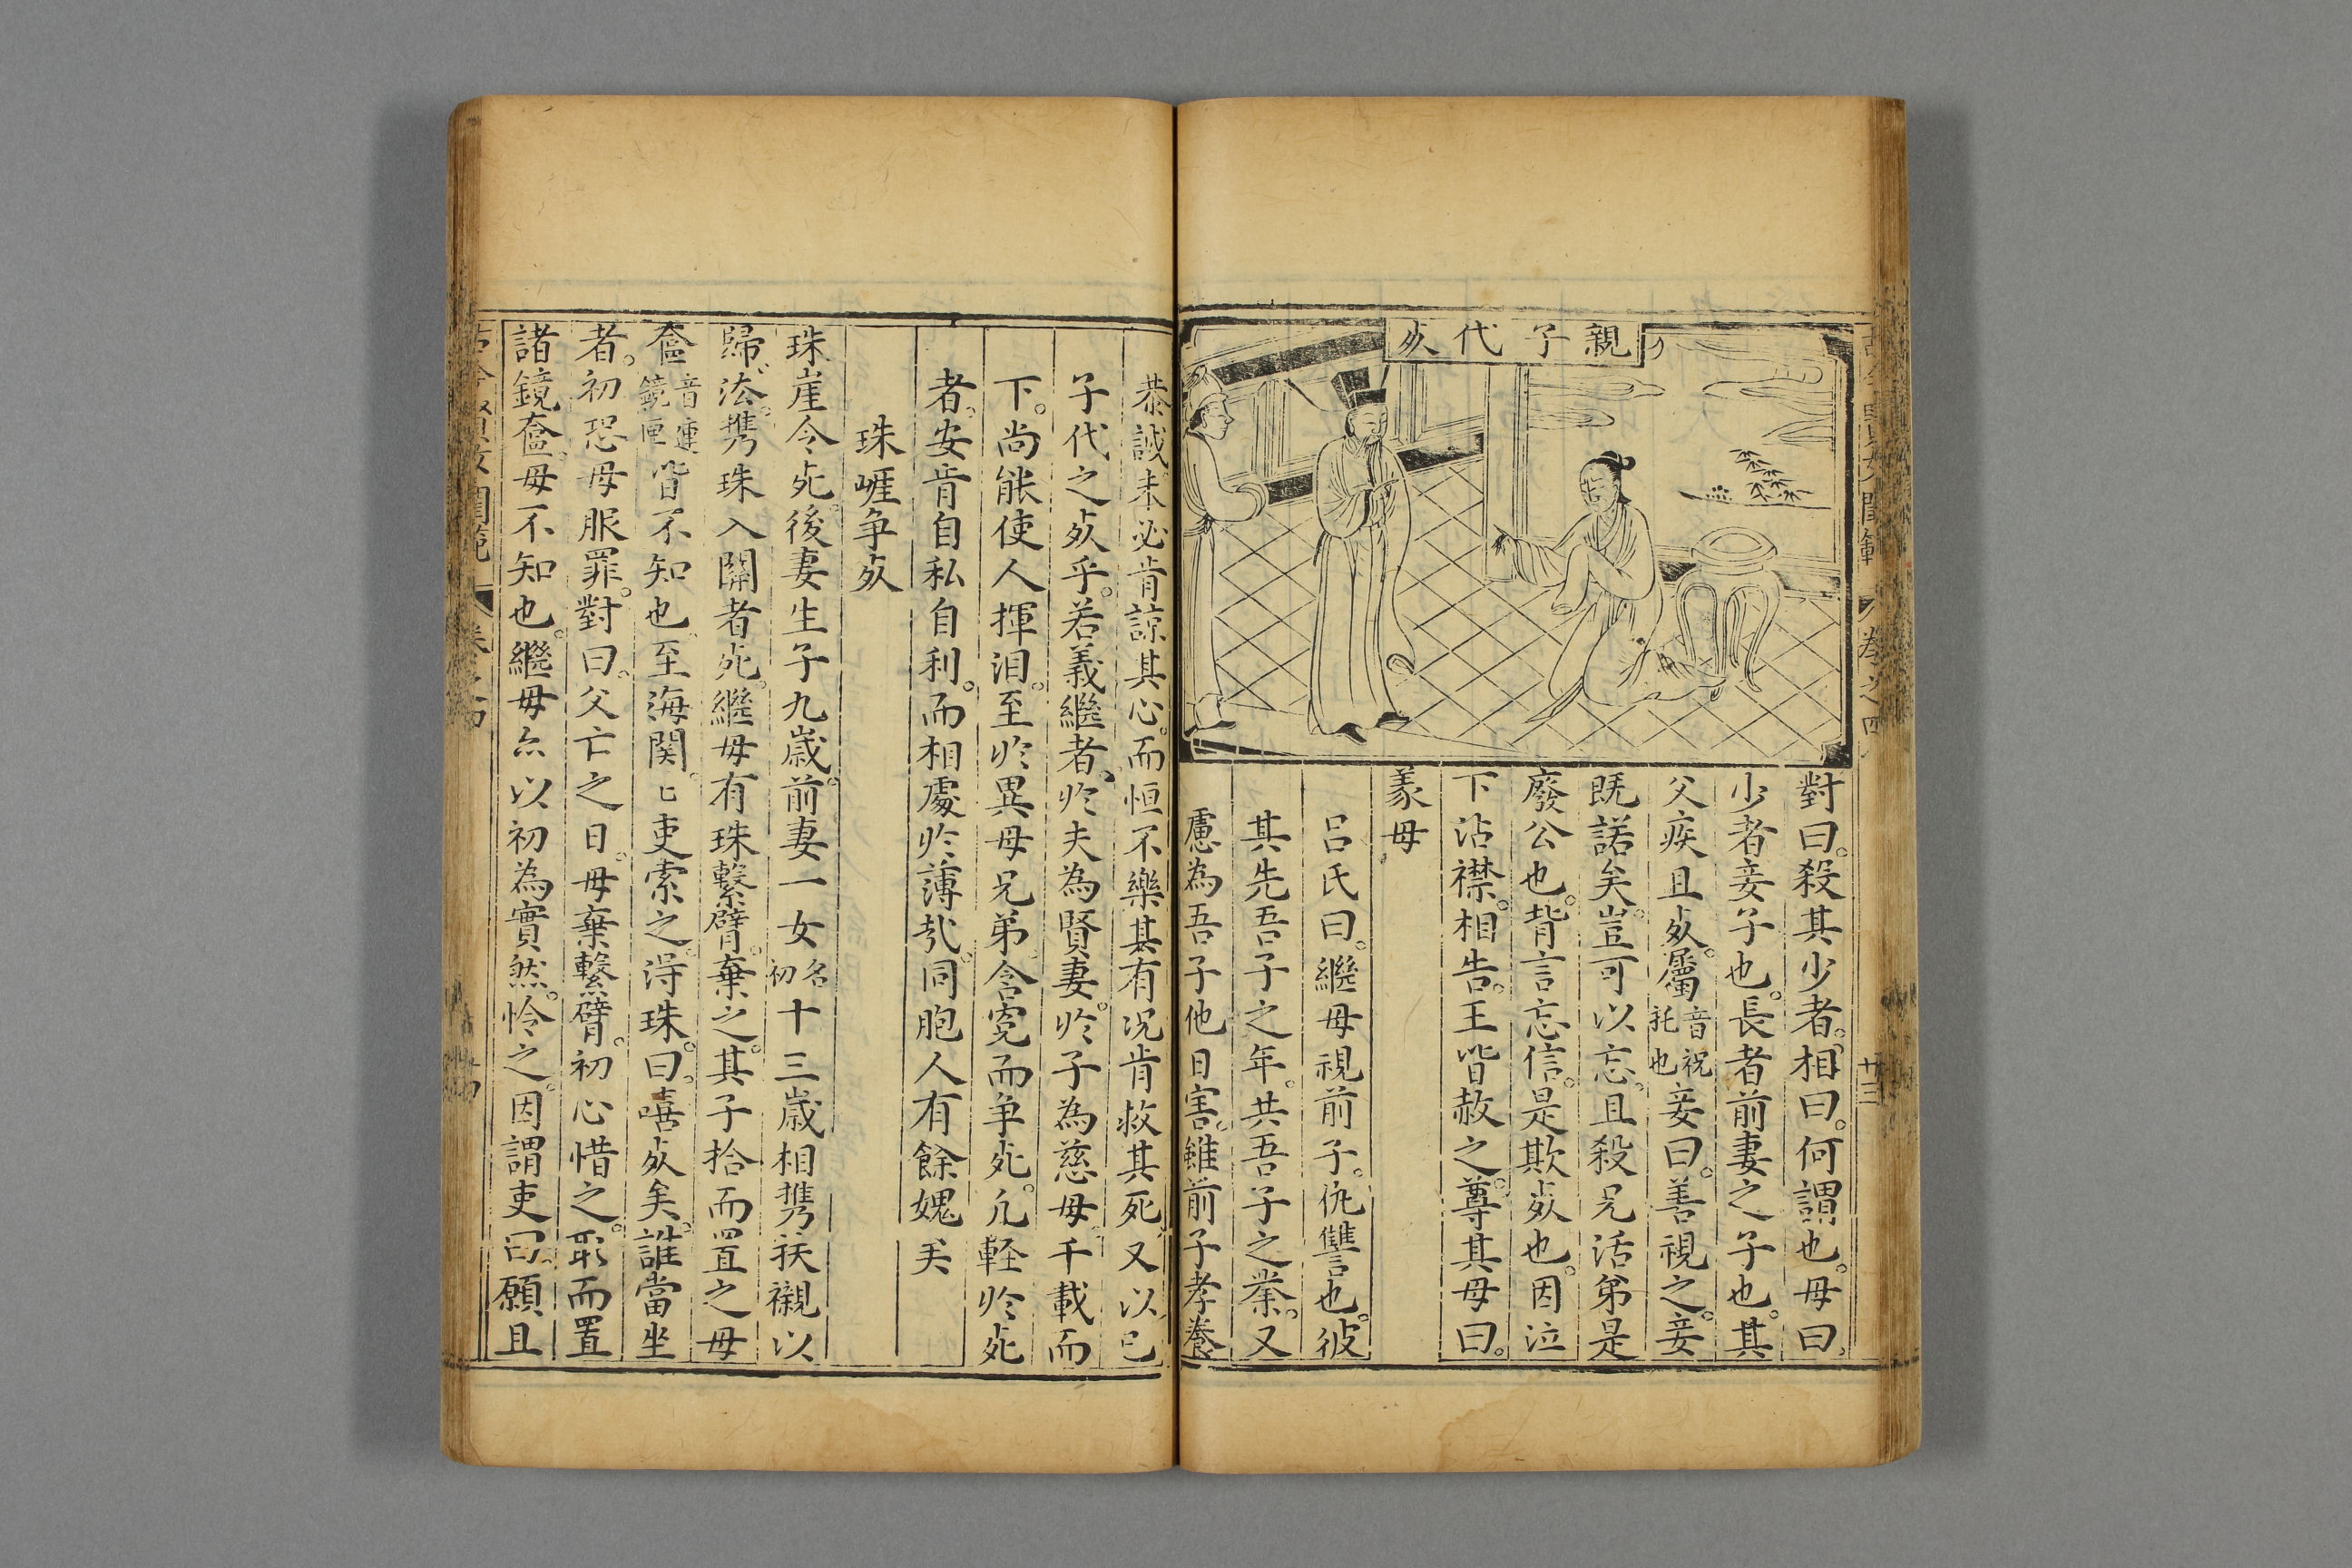 卷之四
廿三
親子代死
對曰殺其少者相曰何謂也母曰
少者妾子也長者前妻之子也其
父疾且死屬音祝托也妾曰善視之妾
既諾矣豈可以忘且殺兄活弟是
廢公也背言忘信是欺死也因泣
下沾襟相告王皆赦之尊其母曰
義母
呂氏曰繼母視前子仇讐也彼
其先吾子之年共吾子之業又
慮為吾子他日害雖前子孝養
恭誠未必肯諒其心而恒不樂其有况肯救其死又以已
子代之死乎若義繼者扵夫為賢妻扵子為慈母千載而
下尚能使人揮泪至扵異母兄弟含寃而争死凢軽扵死
者安肯自私自利而相處扵薄㢤同胞人有餘媿关
珠崕争死
珠崖令死後妻生子九歳前妻一女名初十三歳相携扶襯以
歸法携珠入關者死繼母有珠繫臂棄之其子拾而置之母
奩音連鏡匣皆不知也至海関吏索之淂珠曰嘻死矣誰當坐
者初恐母服罪對曰父亡之日母棄繫臂初心惜之取而置
諸鏡奩母不知也繼母亦以初為實然怜之因謂吏曰願且